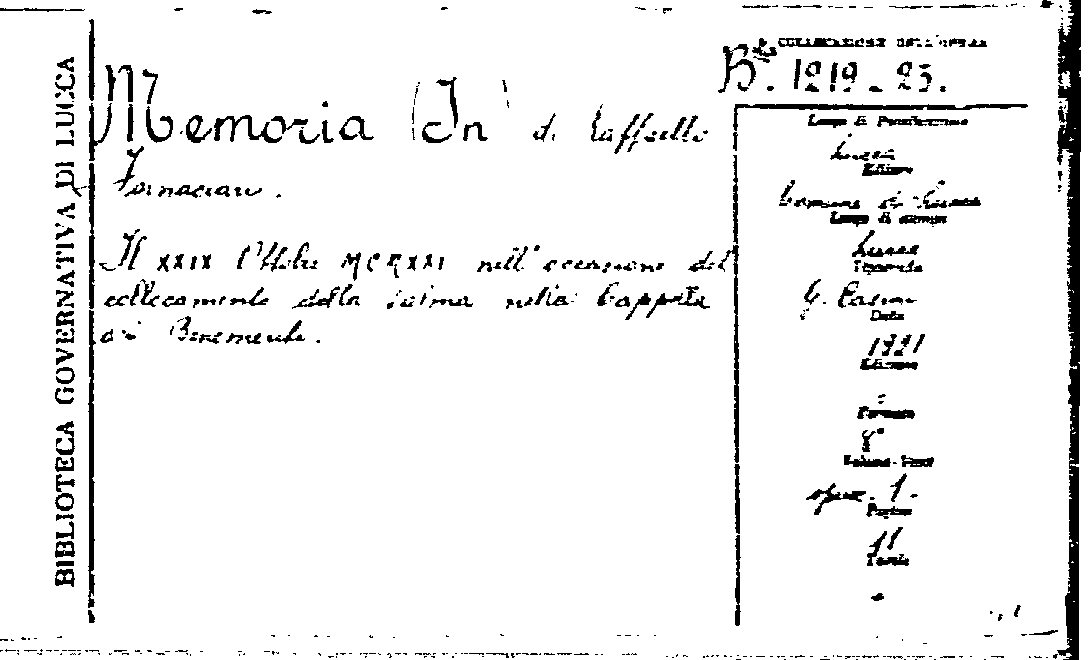 BIBLIOTECA GOVERNATIVA DI LUCCA
COLLOCAZIONE DELL'OPERA
Bta. 1219-23.
Memoria (In) di Raffaello
Fornaciari.
Il XXIX Ottobre MCMXXI nell'occasione del
collocamento della salma nella Cappella
dei Benemeriti.
Luogo di Pubblicazione
Lucca
Editore
Comune di Lucca
Luogo di stampa
Lucca
Tipografia
Data
1921
Edizione
Formato
8°
Volume - Tomi
opusc. 1.
Pagine
11
Tavole